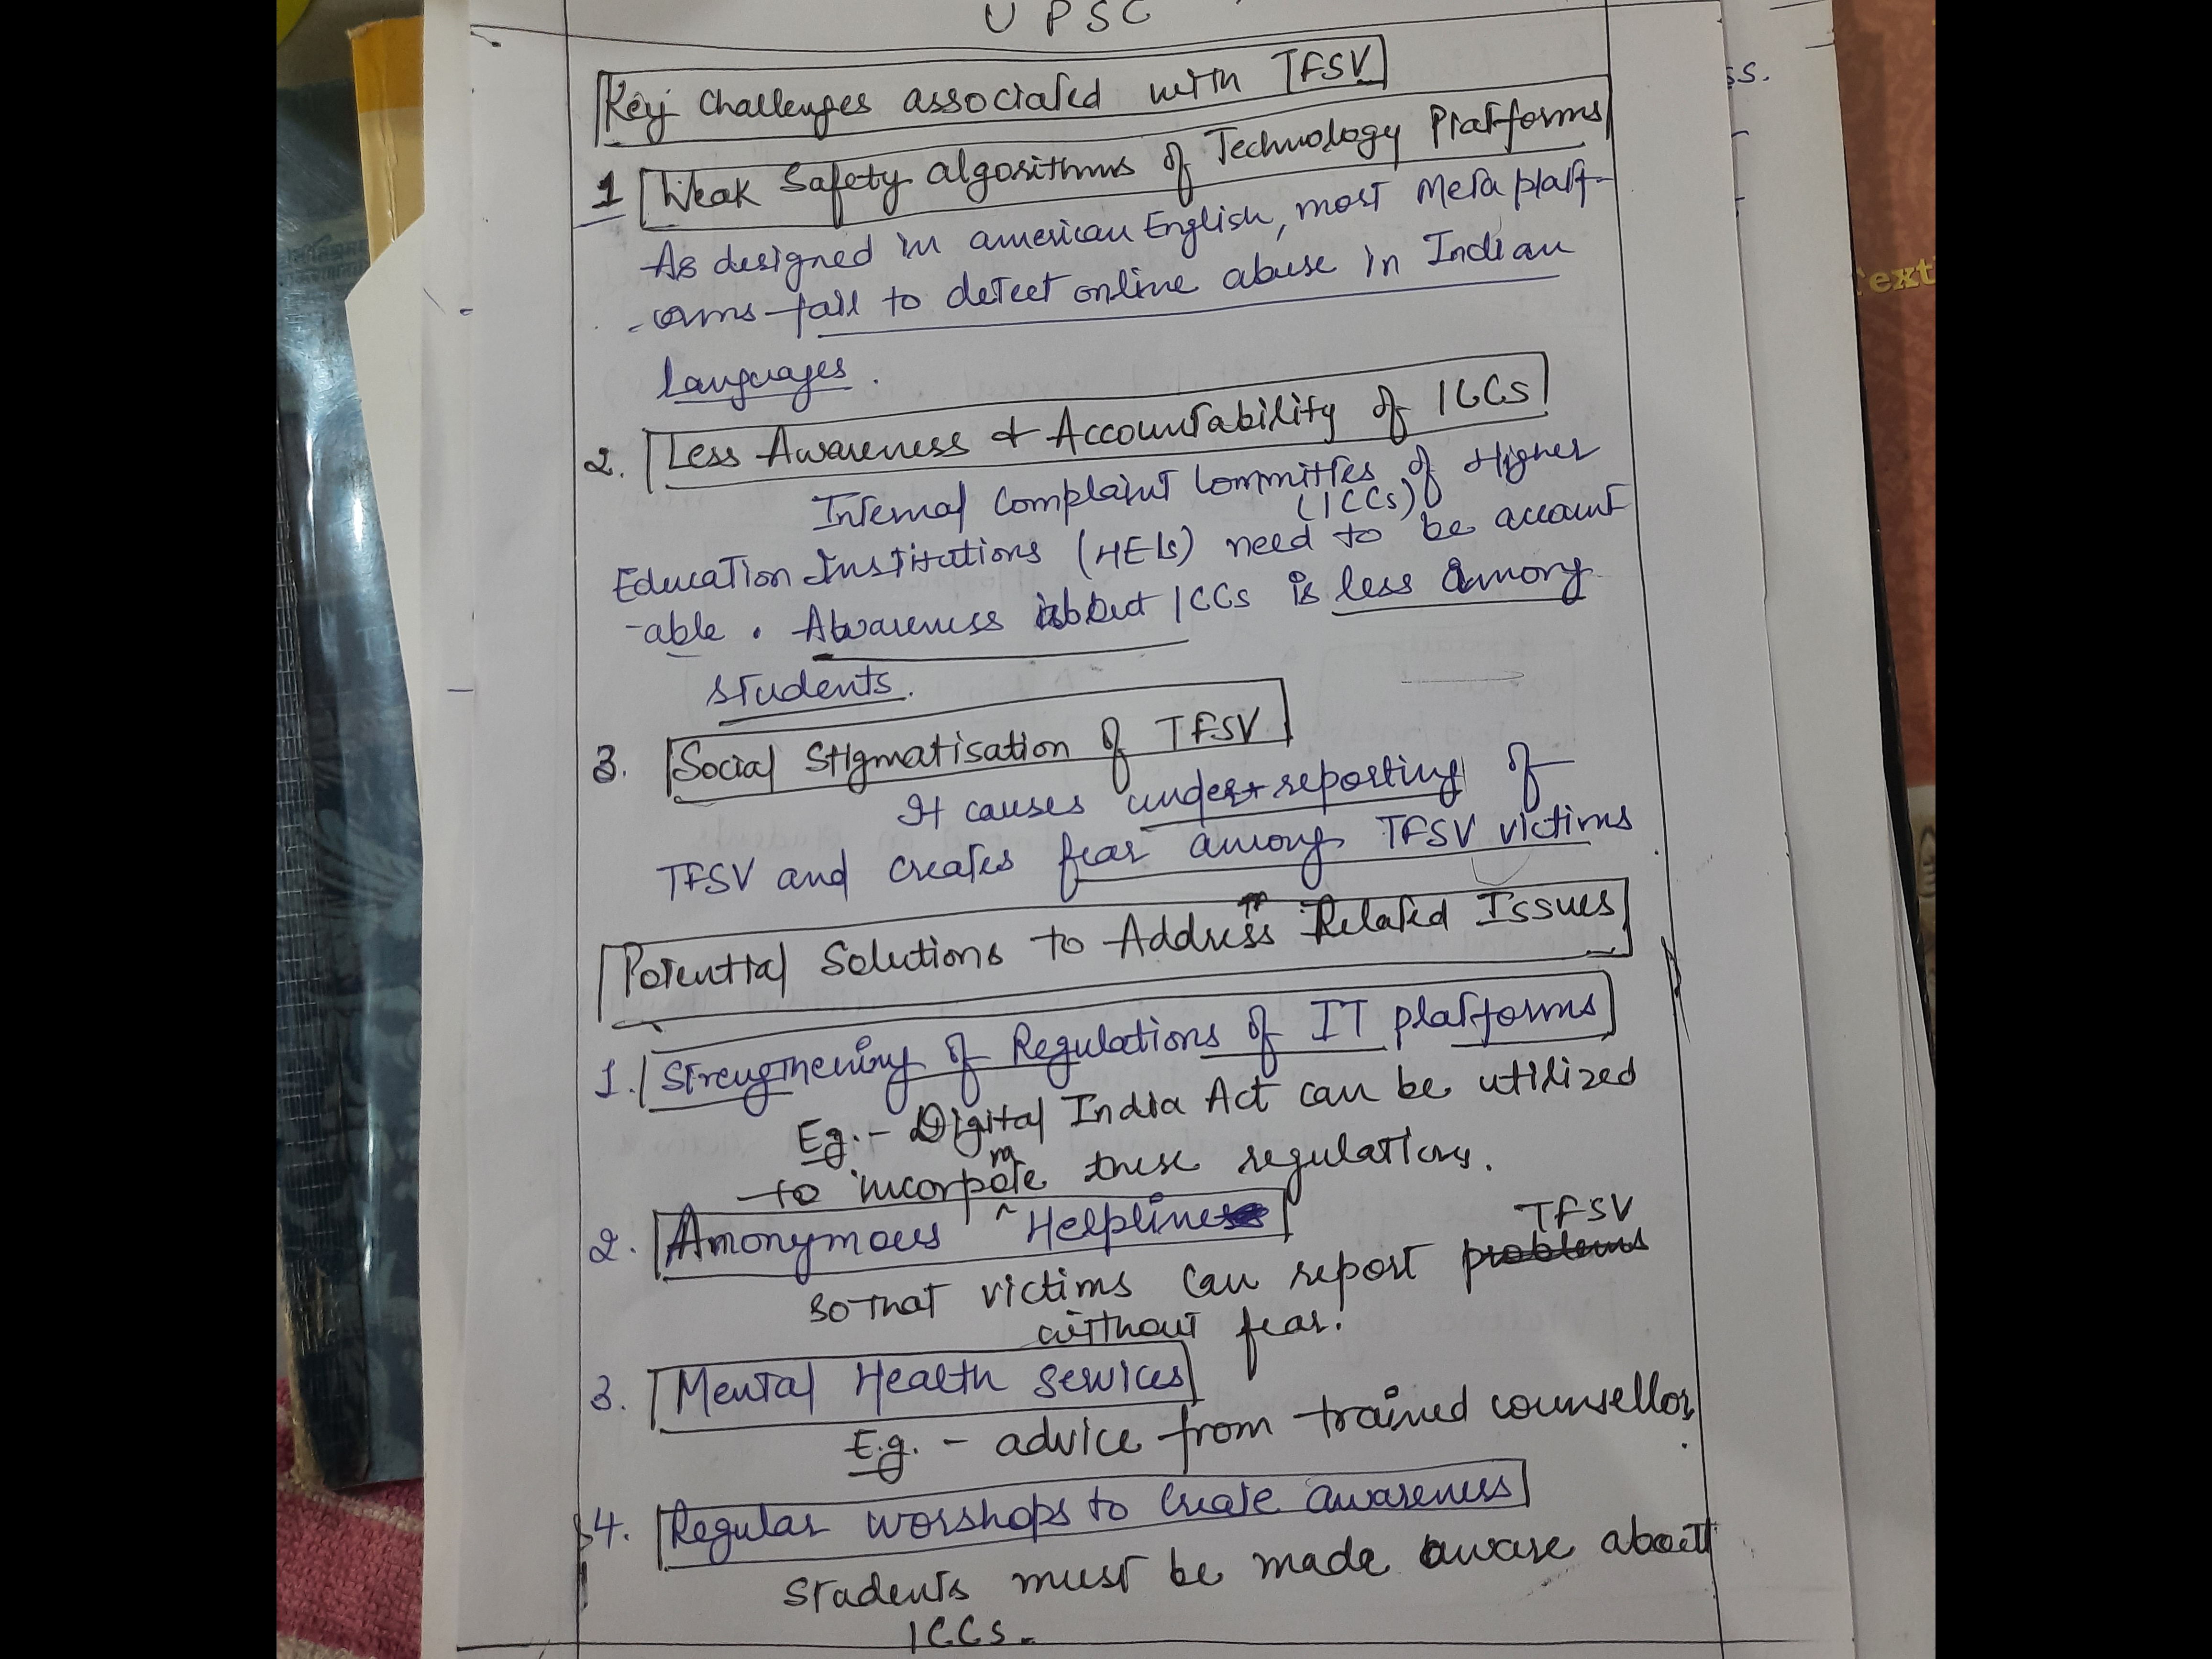 UPSC
Key Challenges associated with TFSV
1 Weak Safety algorithms of Technology Platforms
As designed in american English, most Meta platf-
-orms fail to detect online abuse in Indian
languages.
2. Less Awareness & Accountability of ICCs
Internal Complaint Committes of Higher
(ICCs)
Education Institutions (HEIs) need to be account
-able. Awareness about ICCs is less among
students.
3. Social Stigmatisation of TFSV
It causes under-reporting of
TFSV and creates fear among TFSV victims
Potential Solutions to Address Related Issues
1. Strengthening of Regulations of IT platforms
Eg.- Digital India Act can be utilized
to incorporate these regulations.
2. Anonymous Helpline
TFSV
so that victims can report problems
without fear.
3. Mental Health Services
E.g. - advice from trained counsellor
4. Regular worshops to create awareness
Students must be made aware about
ICCs.
ss.
Text